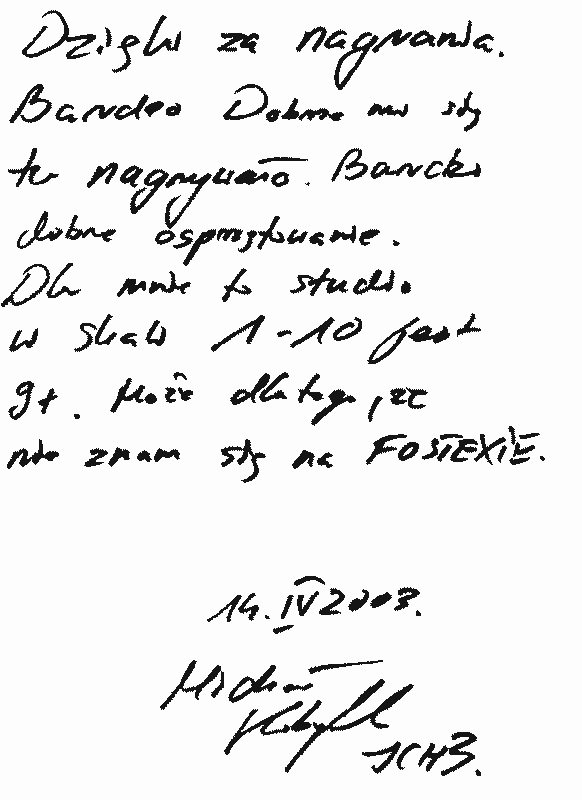 Dzięki za nagrania.
Bardzo Dobrze mi się
tu nagrywało. Bardzo
dobre osprzętowanie.
Dla mnie to studio
w skali 1-10 jest
9+. Może dlatego, że
nie znam się na FOSTEXIE.
14. IV 2003.
Michał